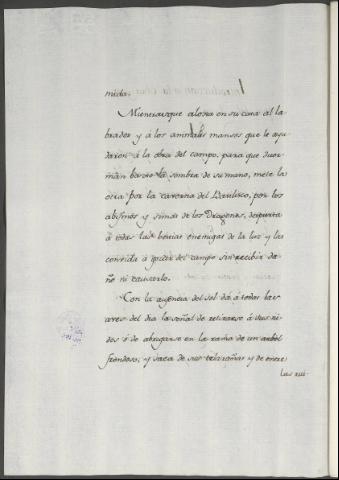 mida.
Mientras que alossa en su cuna al la
brador y á los animales mansos que le ayu
daron á la obra del campo, para que duer
man baxo la sombra de su mano, mete la
otra por la caverna del Basilisco, por los
abismos y simas de los Dragones, despierta
á todas las bestias enemigas de la luz y las
convida á gozar del campo sin recibir da
ño ni causarlo.
Con la ausencia del sol dá á todas las
aves del dia la señal de retirarse á sus ni
dos ó de abrigarse en la rama de un arbol
frondoso; y saca de sus telarañas y de entre
las rui-